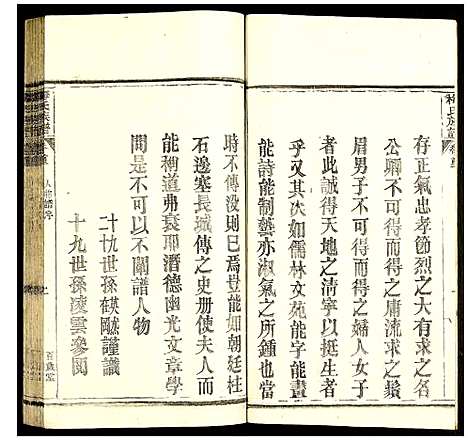 存正氣忠孝節烈之大有求之名
公卿不可得而得之庸流求之鬚
眉男子不可得而得之婦人女子
者此誠得天地之清寧以挺生者
乎又其次如儒林文苑能字能畫
能詩能制藝亦淑氣之所鍾也當
時不傳没則已焉豈能如朝廷柱
石邊塞長城傳之史册使夫人而
能稗道弗衰耶潛德幽光文章學
問是不可以不闡譜人物
二十九世孫 謹識
十九世孫凌雲參閱
氏族譜
人物譜序
百歲堂